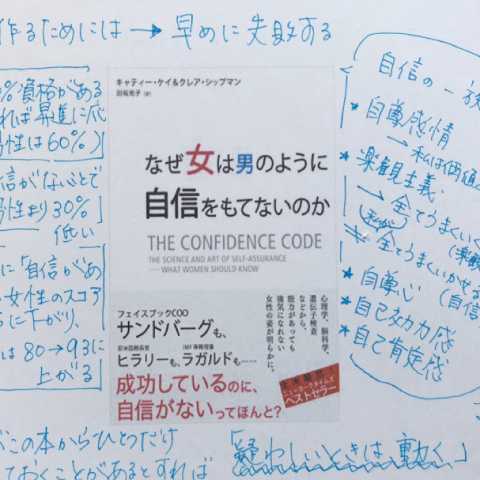 作るためには → 早めに失敗する
%資格がある
れば昇進に応
性は60%)
信がないとで
性より30%
低い
に「自信があ
女性のスコア
に下がり、
は80→93に
上がる
キャティー・ケイ&クレア・シップマン
田坂苑子 (訳)
なぜ女は男のように
自信をもてないのか
THE CONFIDENCE CODE
THE SCIENCE AND ART OF SELF-ASSURANCE
——WHAT WOMEN SHOULD KNOW
心理学、脳科学、
遺伝子検査
などから、
能力があっても
強気になれない
女性の姿が明らかに。
フェイスブックCOO
サンドバーグも、
ヒラリーも、ラガルドも……
成功しているのに、
自信がないってほんと?
ニューヨークタイムズ
ベストセラー
自信の一
★ 自尊感情
→ 私は価値
★ 楽観主義
→ 全てうまくいく
全てうまくいかせる
★ 自尊心 (自信
★ 自己効力感
★ 自己肯定感
この本からひとつだけ
ておくことがあるとすれば「疑わしいときは動く」